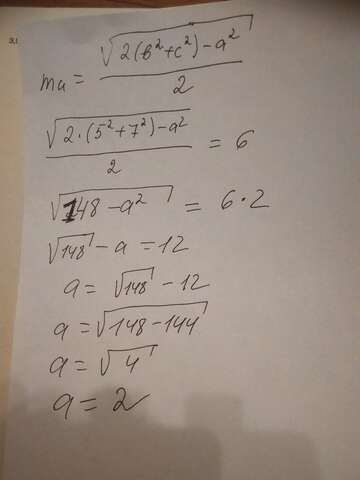 m_a = √(2(b²+c²)-a²) / 2
√(2·(5²+7²)-a²) / 2 = 6
√(148-a²) = 6·2
√148 - a = 12
a = √148 - 12
a = √(148-144)
a = √4
a = 2